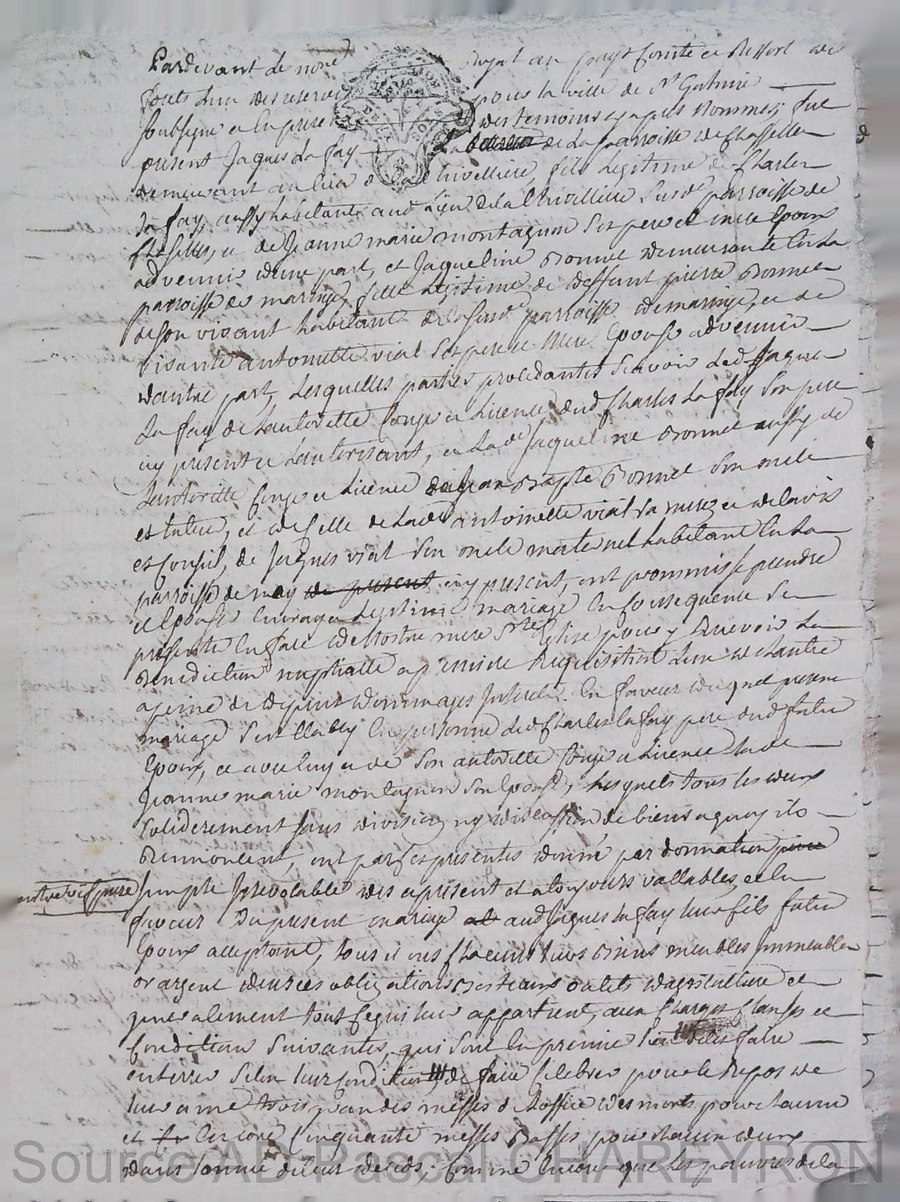 Pardevant le no.re royal au pays Comté et Ressort de
forets l'un des reservés pour la ville de St Galmier
soubsigné et en presence des temoins cy apres nommés, fut
present Jaques la fay de la parroisse de Chasselle
demeurant au lieu de Thivelliere, fils legitime de Charles
la fay, aussy habitant aud. lieu de la Thivilliere susd. parroisse de
Chaselles, et de Jeanne marie montagnon ses pere et mere Epoux
advennir d'une part, et Jaqueline Bonnet demeurante en la
parroisse de maringe, fille legitime de deffunt pierre Bonnet
de son vivant habitant de la susd. parroisse de maringe, et de
vivante antoinette vial ses pere et mere, Epouse advennir
d'autre part, Lesquelles parties procedantes sçavoir led. Jaques
La fay de L'autoritté Congé et Licence dud. Charles La fay son pere
icy present et L'autorisant, et Lad. Jaqueline Bonnet aussy de
L'autoritté Congé et Licence de Jean Bapte Bonnet son oncle
et tuteur, et de celle de Lad. antoinette vial sa mere, et de l'avis
et Conseil, de Jaques vial son oncle maternel habitant En La
parroisse de may de present icy present, ont prommis se prendre
et Epouser En vray et Legitime mariage En Consequence se
presenter En face de Nostre mere Ste Eglise pour y Recevoir La
Benediction nuptialle a premiere Requisition L'un de L'autre
a peine de depens dommages Interets. En faveur duquel present
mariage s'est Etably En personne led. Charles la fay pere dud. futur
Epoux, et avec luy et de son autoritté Congé et Licence lad.
Jeanne marie montagnon son Epouse, Lesquels tous les deux
solidairement sans division ny discussion de biens a quoy ils
Rennoncent, ont par ces presentes donné par donnation pure
entre vifs pure simple Irrevocable des a present et a toujours vallable, et en
faveur du present mariage aud. Jaques la fay leur fils futur
Epoux acceptant, tous et uns chacuns leurs Biens meubles Immeubles
or argent denrées obligations Bestiaux outils d'agriculture et
generalement tout ce qui leur appartient, aux Charges Clauses et
Condition suivantes, qui sont En premier lieu de les faire
enterrer selon leur Condition de faire Celebrer pour le Repos de
leur ame trois grandes messes d'office des morts pour chacun
et En core Cinquante messes Basses pour chacun d'eux
dans l'année de leur deceds, Comme Encore que les pauvres de la
Source AD Pascal CHAREYRON